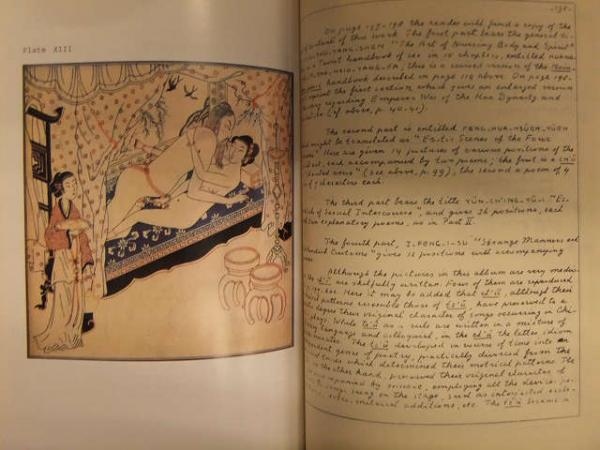 Plate XIII
-191-
On page 157-198 the reader will find a copy of the
of this work. The first part bears the general
"The Art of Nursing Body and Spirit"
handbook of sex in 10 chapters, entitled
this is a revised version of the
handbook described on page 118 above. On page 198-
reprint the first section, which gives an enlarged version
story regarding Emperor Wu of the Han Dynasty and
(cf. above, p. 40-41).
The second part is entitled FENG-HUA-HSÜEH-YÜEH
and might be translated as "Erotic Scenes of the Four
Here are given 14 pictures of various positions of the
each accompanied by two poems; the first is a
verse" (see above, p. 99), the second a poem of 4
of 7 characters each.
The third part bears the title
of Sexual Intercourse", and gives 26 positions, each
explanatory poems, as in Part II.
The fourth part, I-FENG-I-SU "Strange Manners and
Customs" gives 12 positions with accompanying
Although the pictures in this album are very medio-
are skilfully written. Four of them are reproduced
Here it may be added that ch'ü, although their
patterns resemble those of tz'ŭ, have preserved to a
degree their original character of songs occurring in Chi-
plays. While tz'ŭ as a rule are written in a mixture of
language and colloquial, in the ch'ü the latter idiom
The tz'ŭ developed in course of time into an
genre of poetry, practically divorced from the
which determined their metrical patterns. The
on the other hand, preserved their original character of
accompanied by music, employing all the devices
songs sung on the stage, such as interjected excla-
additions, etc. The